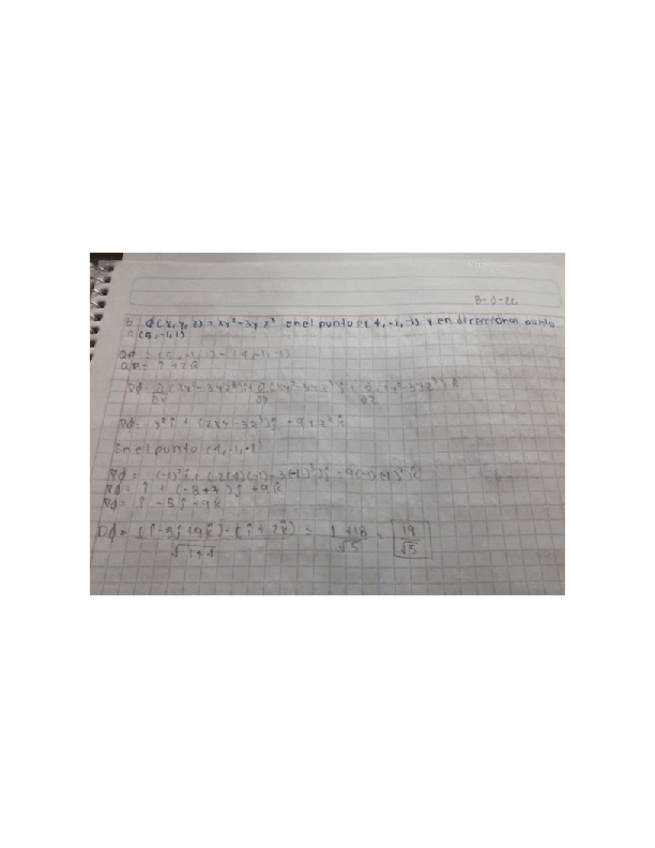 8-0-20
6 φ(x,y,z) = xy²-3yz³ en el punto P(4,-1,-1) y en direccion al punto
(5,-1,1)
(5,-1,1) - (4,-1,-1)
= î + 2k̂
∇φ = ∂/∂x (xy²-3yz³)î + ∂/∂y (xy²-3yz³)ĵ + ∂/∂z (xy²-3yz³)k̂
∇φ = y²î + (2xy-3z³)ĵ - 9yz²k̂
En el punto (4,-1,-1)
∇φ = (-1)²î + (2(4)(-1)-3(-1)³)ĵ - 9(-1)(-1)²k̂
∇φ = î + (-8+3)ĵ + 9k̂
∇φ = î - 5ĵ + 9k̂
Dφ = (î-5ĵ+9k̂)·(î+2k̂) / √1+4 = 1+18/√5 = 19/√5